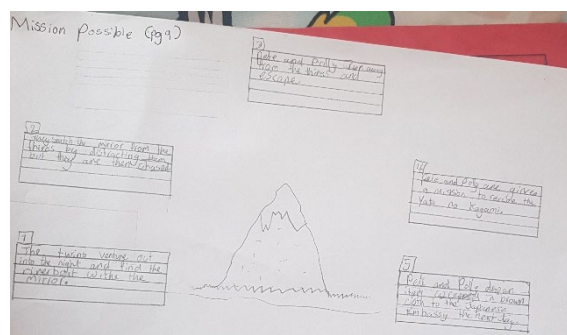 Mission Possible (pg 9)
3
Pete and Polly jump away
from the thives and
escape
2
They snatch the mirror from the
thives by distracting them
but they are then chased
4
Pete and Polly are given
a mission to receive the
Yata no Kagami
1
The twins venture out
into the night and find the
riverboat withe the
mirror.
5
Pete and Polly
the in brown
cloth to the Japanese
embassy the next day